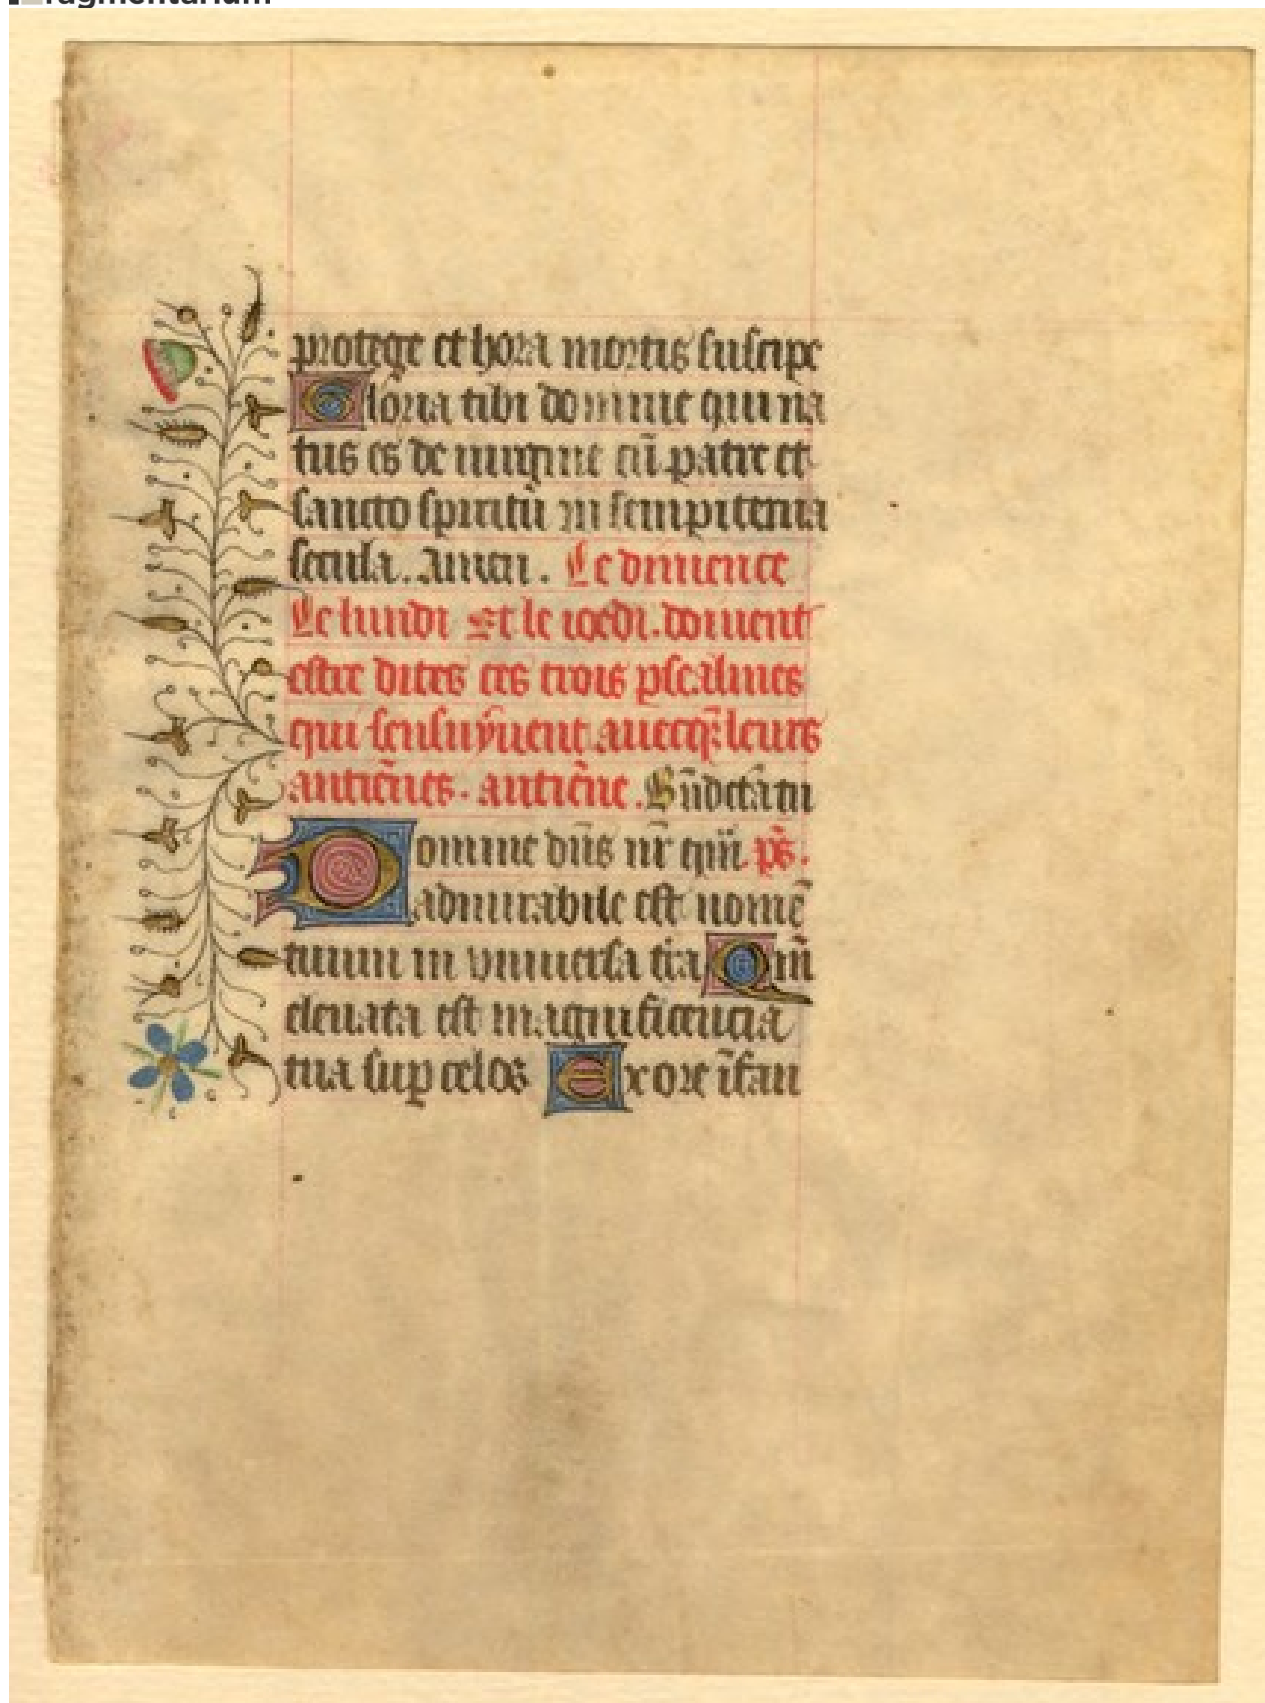 ragmentarium
protege et hora mortis suscipe
Gloria tibi domine qui na
tus es de uirgine cū patre et
sancto spiritū in sempiterna
secula. Amen. Le dimence
Le lundi Et le ioedi. doiuent
estre dites ces trois pseaLmes
qui sensuyuent auecq̄ leurs
antiēnes. antiēne. B̄ndcā tu
Domine dn̄s nr̄ qm̄ ps̄.
admirabile est nomē
tuum in vniuersa tr̄a Qm̄
eleuata est magnificencia
tua sup celos Ex ore īfan